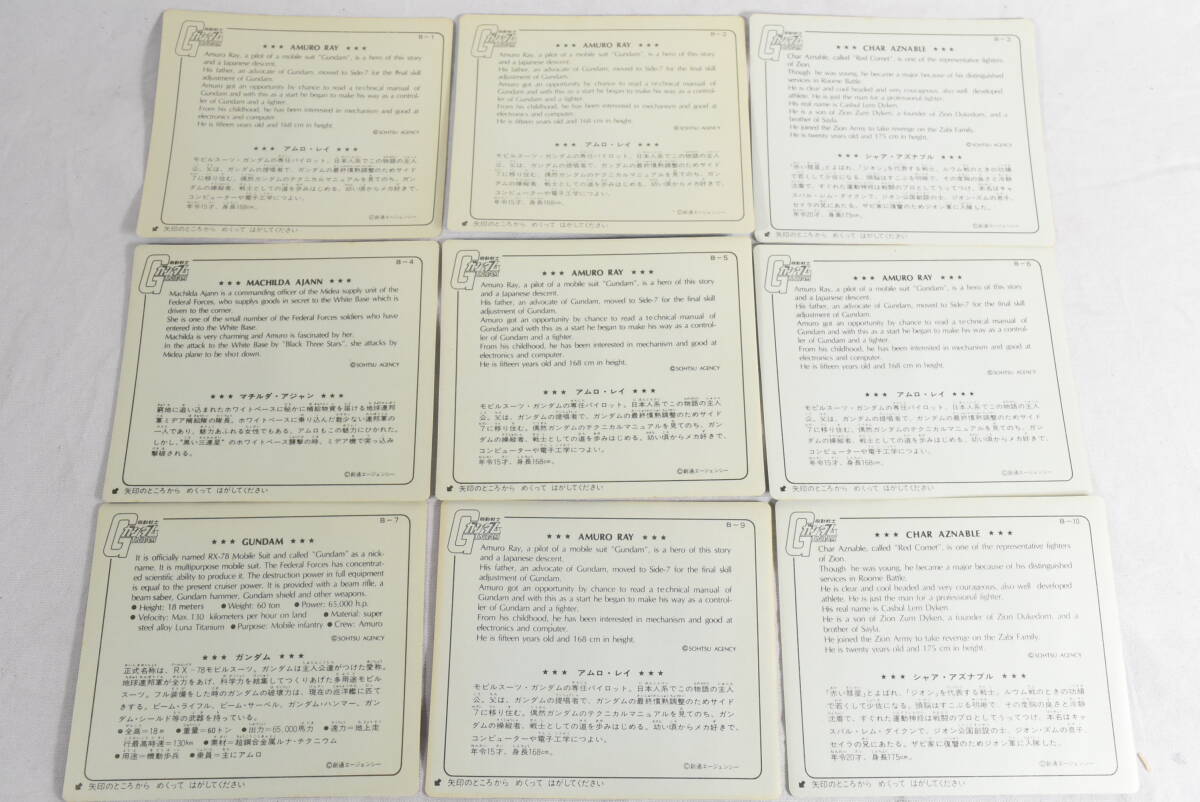 機動戦士
ガンダム
B-1
★★★ AMURO RAY ★★★
Amuro Ray, a pilot of a mobile suit "Gundam", is a hero of this story
and a Japanese descent.
His father, an advocate of Gundam, moved to Side-7 for the final skill
adjustment of Gundam.
Amuro got an opportunity by chance to read a technical manual of
Gundam and with this as a start he began to make his way as a control-
ler of Gundam and a fighter.
From his childhood, he has been interested in mechanism and good at
electronics and computer.
He is fifteen years old and 168 cm in height.
©SOHTSU AGENCY
★★★ アムロ・レイ ★★★
モビルスーツ・ガンダムの専任パイロット。日本人系でこの物語の主人
公。父は、ガンダムの提唱者で、ガンダムの最終慣熟調整のためサイド
7に移り住む。偶然ガンダムのテクニカルマニュアルを見てのち、ガン
ダムの操縦者、戦士としての道を歩みはじめる。幼い頃からメカ好きで、
コンピューターや電子工学につよい。
年令15才、身長168cm。
©創通エージェンシー
矢印のところから めくって はがしてください
機動戦士
ガンダム
B-2
★★★ AMURO RAY ★★★
Amuro Ray, a pilot of a mobile suit "Gundam", is a hero of this story
and a Japanese descent.
His father, an advocate of Gundam, moved to Side-7 for the final skill
adjustment of Gundam.
Amuro got an opportunity by chance to read a technical manual of
Gundam and with this as a start he began to make his way as a control-
ler of Gundam and a fighter.
From his childhood, he has been interested in mechanism and good at
electronics and computer.
He is fifteen years old and 168 cm in height.
©SOHTSU AGENCY
★★★ アムロ・レイ ★★★
モビルスーツ・ガンダムの専任パイロット。日本人系でこの物語の主人
公。父は、ガンダムの提唱者で、ガンダムの最終慣熟調整のためサイド
7に移り住む。偶然ガンダムのテクニカルマニュアルを見てのち、ガン
ダムの操縦者、戦士としての道を歩みはじめる。幼い頃からメカ好きで、
コンピューターや電子工学につよい。
年令15才、身長168cm。
©創通エージェンシー
矢印のところから めくって はがしてください
機動戦士
ガンダム
★★★ CHAR AZNABLE ★★★
Char Aznable, called "Red Comet", is one of the representative fighters
of Zion.
Though he was young, he became a major because of his distinguished
services in Roome Battle.
He is clear and cool headed and very courageous, also well developed
athlete. He is just the man for a professional fighter.
His real name is Casbul Lem Dyken.
He is a son of Zion Zum Dyken, a founder of Zion Dukedom, and a
brother of Sayla.
He joined the Zion Army to take revenge on the Zabi Family.
He is twenty years old and 175 cm in height.
©SOHTSU AGENCY
★★★ シャア・アズナブル ★★★
「赤い彗星」とよばれ、「ジオン」を代表する戦士。ルウム戦のときの功績
で若くして少佐になる。頭脳はすこぶる明晰で、その度胸の良さと冷静
沈着で、すぐれた運動神経は戦闘のプロとしてうってつけ。本名はキャ
スバル・レム・ダイクンで、ジオン公国創設の士、ジオン・ズムの息子。
セイラの兄にあたる。ザビ家に復讐のためジオン軍に入隊した。
年令20才、身長175cm。
©創通エージェンシー
矢印のところから めくって はがしてください
機動戦士
ガンダム
B-4
★★★ MACHILDA AJANN ★★★
Machilda Ajann is a commanding officer of the Midea supply unit of the
Federal Forces, who supplys goods in secret to the White Base which is
driven to the corner.
She is one of the small number of the Federal Forces soldiers who have
entered into the White Base.
Machilda is very charming and Amuro is fascinated by her.
In the attack to the White Base by "Black Three Stars", she attacks by
Midea plane to be shot down.
©SOHTSU AGENCY
★★★ マチルダ・アジャン ★★★
窮地に追い込まれたホワイトベースに秘かに補給物資を届ける地球連邦
軍ミデア補給隊の隊長。ホワイトベースに乗り込んだ数少ない連邦軍の
一人であり、魅力あふれる女性でもある。アムロもこの魅力にひかれた。
しかし、"黒い三連星"のホワイトベース襲撃の時、ミデア機で突っ込み
撃破される。
©創通エージェンシー
矢印のところから めくって はがしてください
機動戦士
ガンダム
B-5
★★★ AMURO RAY ★★★
Amuro Ray, a pilot of a mobile suit "Gundam", is a hero of this story
and a Japanese descent.
His father, an advocate of Gundam, moved to Side-7 for the final skill
adjustment of Gundam.
Amuro got an opportunity by chance to read a technical manual of
Gundam and with this as a start he began to make his way as a control-
ler of Gundam and a fighter.
From his childhood, he has been interested in mechanism and good at
electronics and computer.
He is fifteen years old and 168 cm in height.
©SOHTSU AGENCY
★★★ アムロ・レイ ★★★
モビルスーツ・ガンダムの専任パイロット。日本人系でこの物語の主人
公。父は、ガンダムの提唱者で、ガンダムの最終慣熟調整のためサイド
7に移り住む。偶然ガンダムのテクニカルマニュアルを見てのち、ガン
ダムの操縦者、戦士としての道を歩みはじめる。幼い頃からメカ好きで、
コンピューターや電子工学につよい。
年令15才、身長168cm。
©創通エージェンシー
矢印のところから めくって はがしてください
機動戦士
ガンダム
B-6
★★★ AMURO RAY ★★★
Amuro Ray, a pilot of a mobile suit "Gundam", is a hero of this story
and a Japanese descent.
His father, an advocate of Gundam, moved to Side-7 for the final skill
adjustment of Gundam.
Amuro got an opportunity by chance to read a technical manual of
Gundam and with this as a start he began to make his way as a control-
ler of Gundam and a fighter.
From his childhood, he has been interested in mechanism and good at
electronics and computer.
He is fifteen years old and 168 cm in height.
©SOHTSU AGENCY
★★★ アムロ・レイ ★★★
モビルスーツ・ガンダムの専任パイロット。日本人系でこの物語の主人
公。父は、ガンダムの提唱者で、ガンダムの最終慣熟調整のためサイド
7に移り住む。偶然ガンダムのテクニカルマニュアルを見てのち、ガン
ダムの操縦者、戦士としての道を歩みはじめる。幼い頃からメカ好きで、
コンピューターや電子工学につよい。
年令15才、身長168cm。
©創通エージェンシー
矢印のところから めくって はがしてください
機動戦士
ガンダム
B-7
★★★ GUNDAM ★★★
It is officially named RX-78 Mobile Suit and called "Gundam" as a nick-
name. It is multipurpose mobile suit. The Federal Forces has concentrat-
ed scientific ability to produce it. The destruction power in full equipment
is equal to the present cruiser power. It is provided with a beam rifle, a
beam saber, Gundam hammer, Gundam shield and other weapons.
● Height: 18 meters ● Weight: 60 ton ● Power: 65,000 h.p.
● Velocity: Max. 130 kilometers per hour on land ● Material: super
steel alloy Luna Titanium ● Purpose: Mobile infantry ● Crew: Amuro
©SOHTSU AGENCY
★★★ ガンダム ★★★
正式名称は、RX-78モビルスーツ。ガンダムは主人公達がつけた愛称。
地球連邦軍が全力をあげ、科学力を結集してつくりあげた多用途モビル
スーツ。フル装備をした時のガンダムの破壊力は、現在の巡洋艦に匹て
きする。ビーム・ライフル、ビーム・サーベル、ガンダム・ハンマー、ガン
ダム・シールド等の武器を持っている。
●全高=18m ●重量=60トン ●出力=65,000馬力 ●速力=地上走
行最高時速=130km ●素材=超鋼合金属ルナ・チタニウム
●用途=機動歩兵 ●乗員=主にアムロ
©創通エージェンシー
矢印のところから めくって はがしてください
機動戦士
ガンダム
B-9
★★★ AMURO RAY ★★★
Amuro Ray, a pilot of a mobile suit "Gundam", is a hero of this story
and a Japanese descent.
His father, an advocate of Gundam, moved to Side-7 for the final skill
adjustment of Gundam.
Amuro got an opportunity by chance to read a technical manual of
Gundam and with this as a start he began to make his way as a control-
ler of Gundam and a fighter.
From his childhood, he has been interested in mechanism and good at
electronics and computer.
He is fifteen years old and 168 cm in height.
©SOHTSU AGENCY
★★★ アムロ・レイ ★★★
モビルスーツ・ガンダムの専任パイロット。日本人系でこの物語の主人
公。父は、ガンダムの提唱者で、ガンダムの最終慣熟調整のためサイド
7に移り住む。偶然ガンダムのテクニカルマニュアルを見てのち、ガン
ダムの操縦者、戦士としての道を歩みはじめる。幼い頃からメカ好きで、
コンピューターや電子工学につよい。
年令15才、身長168cm。
©創通エージェンシー
矢印のところから めくって はがしてください
機動戦士
ガンダム
B-10
★★★ CHAR AZNABLE ★★★
Char Aznable, called "Red Comet", is one of the representative fighters
of Zion.
Though he was young, he became a major because of his distinguished
services in Roome Battle.
He is clear and cool headed and very courageous, also well developed
athlete. He is just the man for a professional fighter.
His real name is Casbul Lem Dyken.
He is a son of Zion Zum Dyken, a founder of Zion Dukedom, and a
brother of Sayla.
He joined the Zion Army to take revenge on the Zabi Family.
He is twenty years old and 175 cm in height.
©SOHTSU AGENCY
★★★ シャア・アズナブル ★★★
「赤い彗星」とよばれ、「ジオン」を代表する戦士。ルウム戦のときの功績
で若くして少佐になる。頭脳はすこぶる明晰で、その度胸の良さと冷静
沈着で、すぐれた運動神経は戦闘のプロとしてうってつけ。本名はキャ
スバル・レム・ダイクンで、ジオン公国創設の士、ジオン・ズムの息子。
セイラの兄にあたる。ザビ家に復讐のためジオン軍に入隊した。
年令20才、身長175cm。
©創通エージェンシー
矢印のところから めくって はがしてください